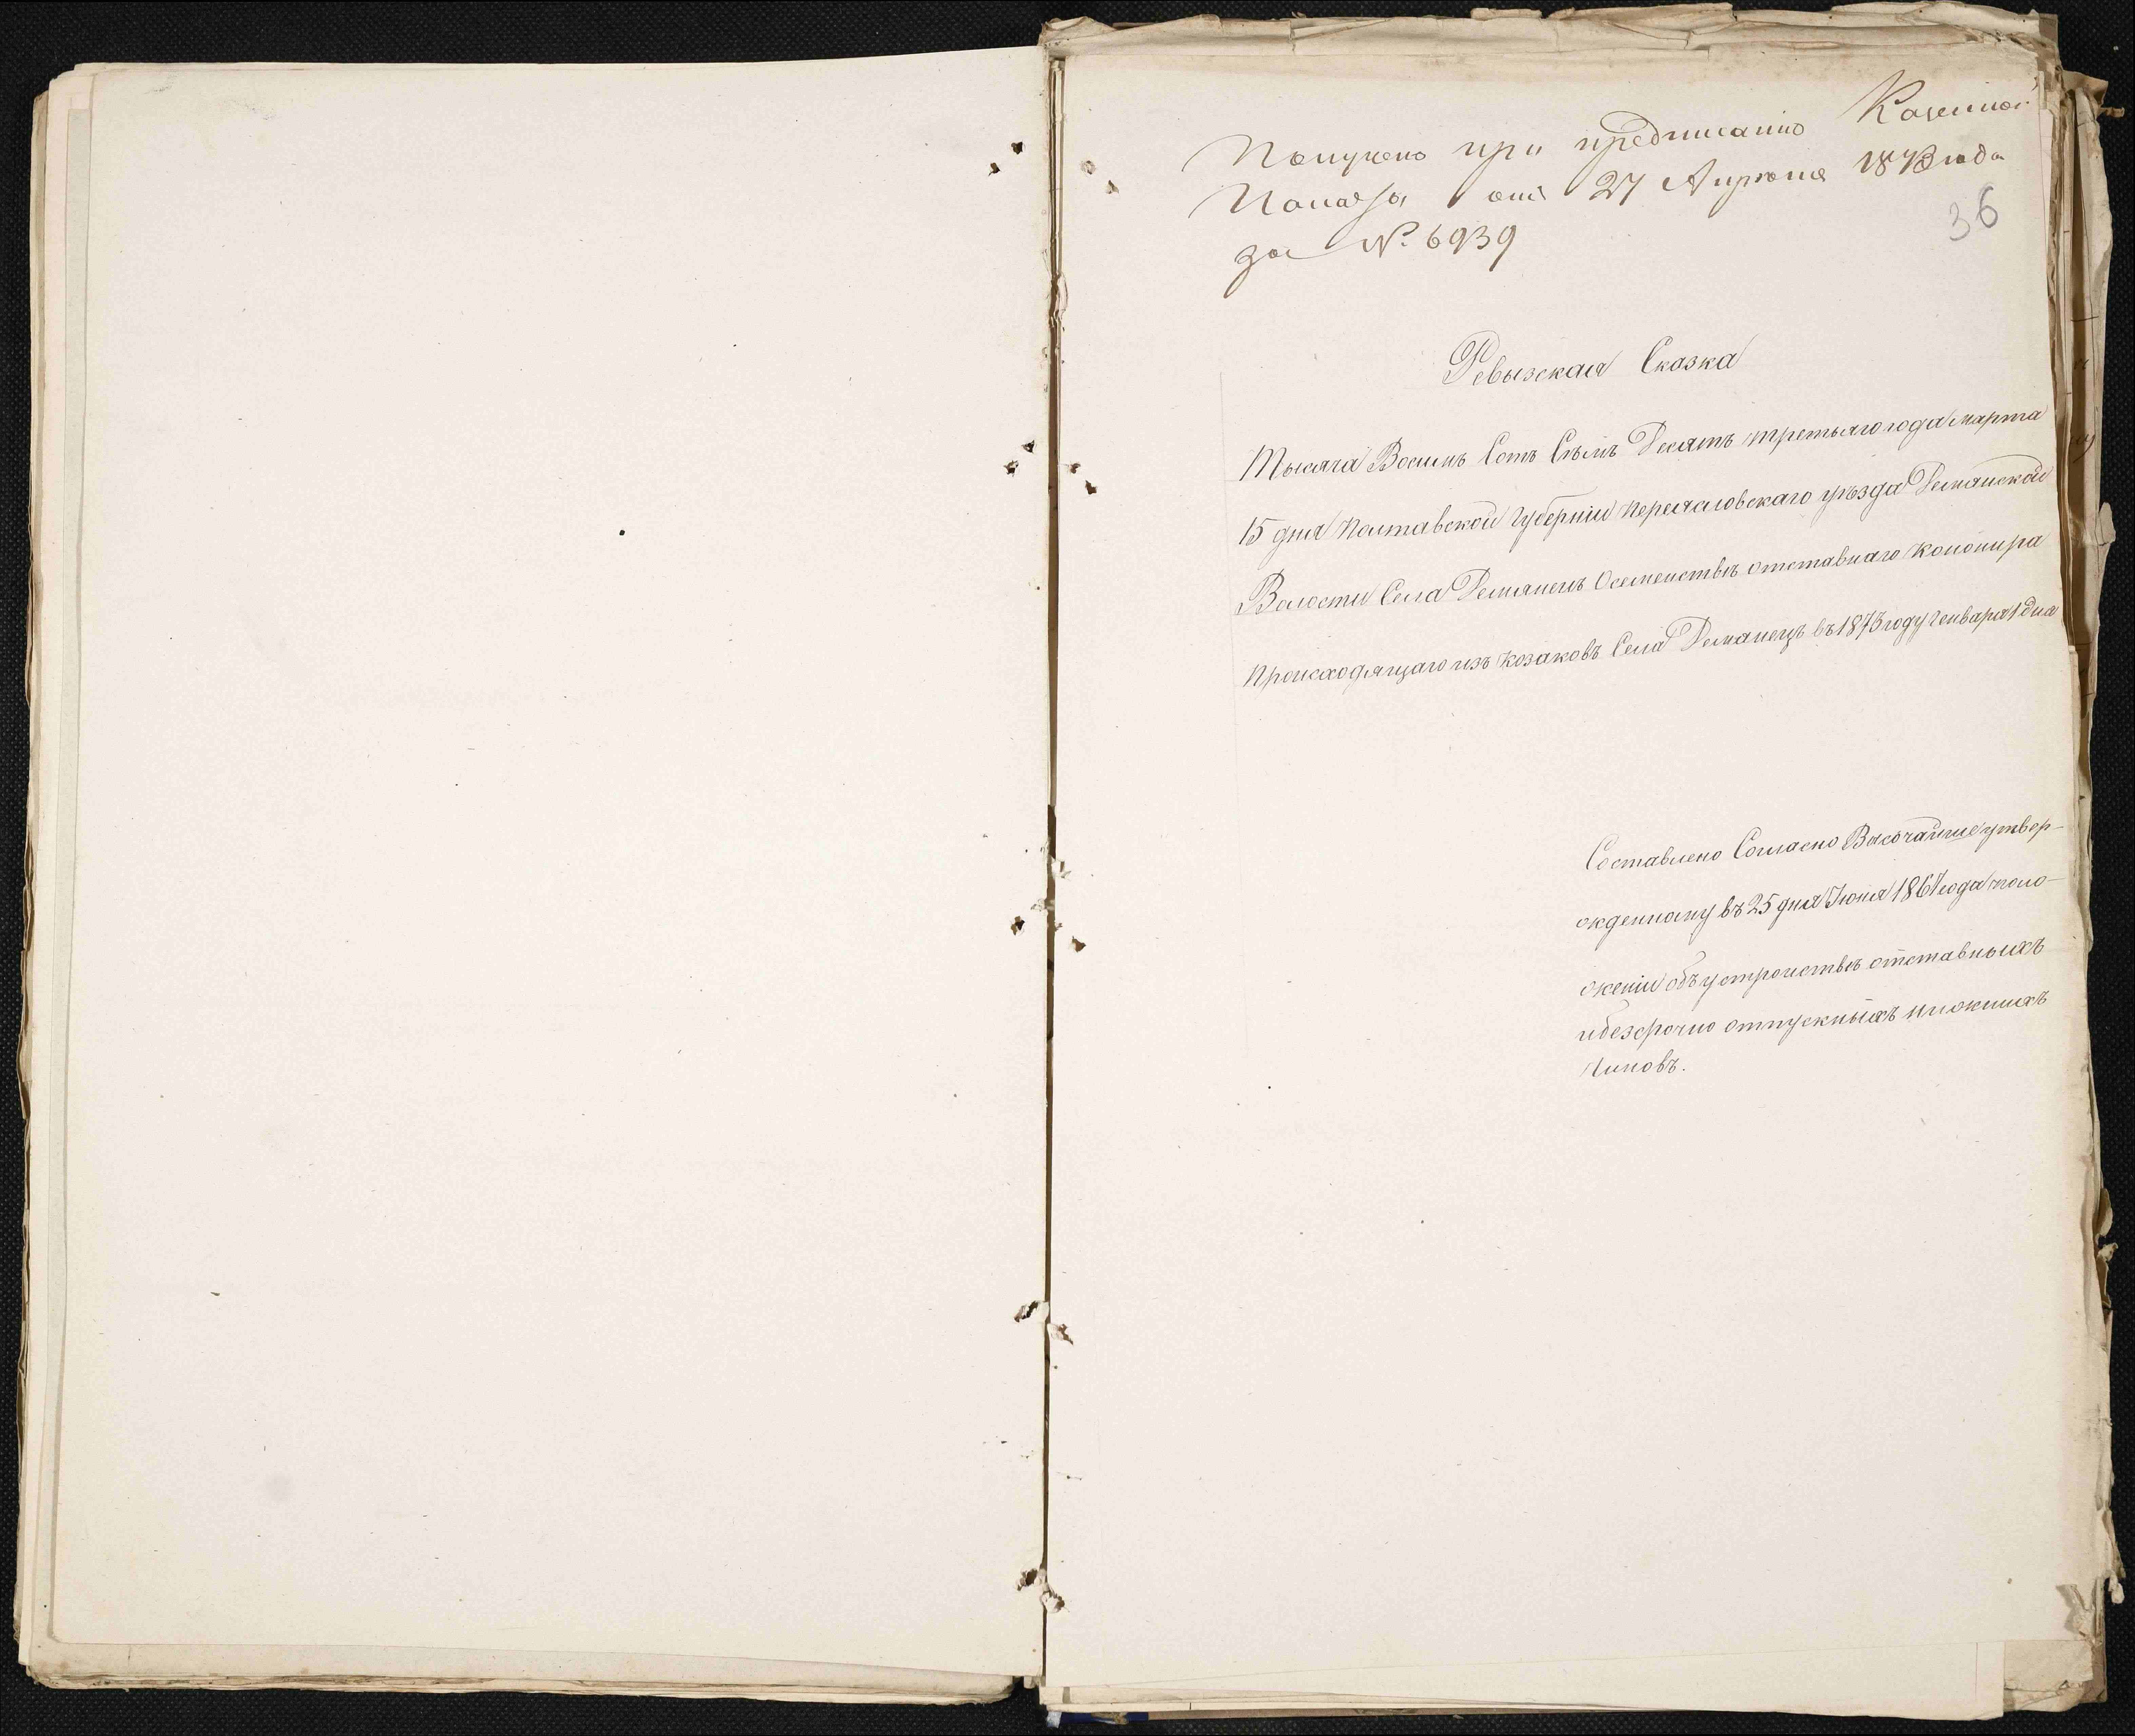 Получено при предписанію Казенной
Палаты отъ 27 Апрѣля 1873 года
за № 6939
36
Ревызская Сказка
Тысяча Восимъ Сотъ Сѣмъ Десятъ третьяго года марта
15 дня Полтавской Губерніи Переяловскаго уѣзда Демянской
Волости Села Демянецъ Осемействѣ отставнаго Кононира
Происходящаго изъ Козаковъ Села Демянецъ въ 1873 году Генваря 1 дня
Составлено Согласно Высочайше утвер-
жденному въ 25 дня Іюня 1867 года поло-
женіи объ устройствѣ отставныхъ
и безсрочно отпускныхъ нижнихъ
Чиновъ.